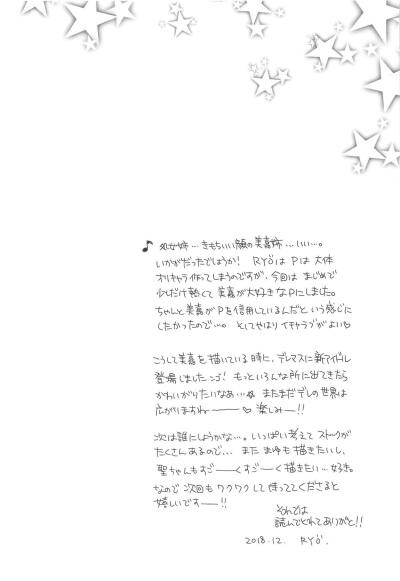 ♪ 処女姉…きもちいい顔の美嘉姉…いい…。
いかがだったでしょうか！ RYOはPは大体
オリキャラ作ってしまうのですが、今回はまじめで
少しだけ熱くて美嘉が大好きなPにしました。
ちゃんと美嘉がPを信用しているんだという感じに
したかったので…。としてやはりイチャラブがよい♡
こうして美嘉を描いている時に、デレマスに新アイドル
登場しましたンゴ！ もっといろんな所に出てきたら
かわいがりたいなあ… またまだデレの世界は
広がりますねー ♡ 楽しみー!!
次は誰にしようかな…。いっぱい考えてストックが
たくさんあるので… また まゆも描きたいし、
聖ちゃんもすごーくすごーく描きたい…好き。
なので次回もワクワクして待っててくださると
嬉しいですー!!
それでは
読んでくれてありがと!!
2018.12. RYO.